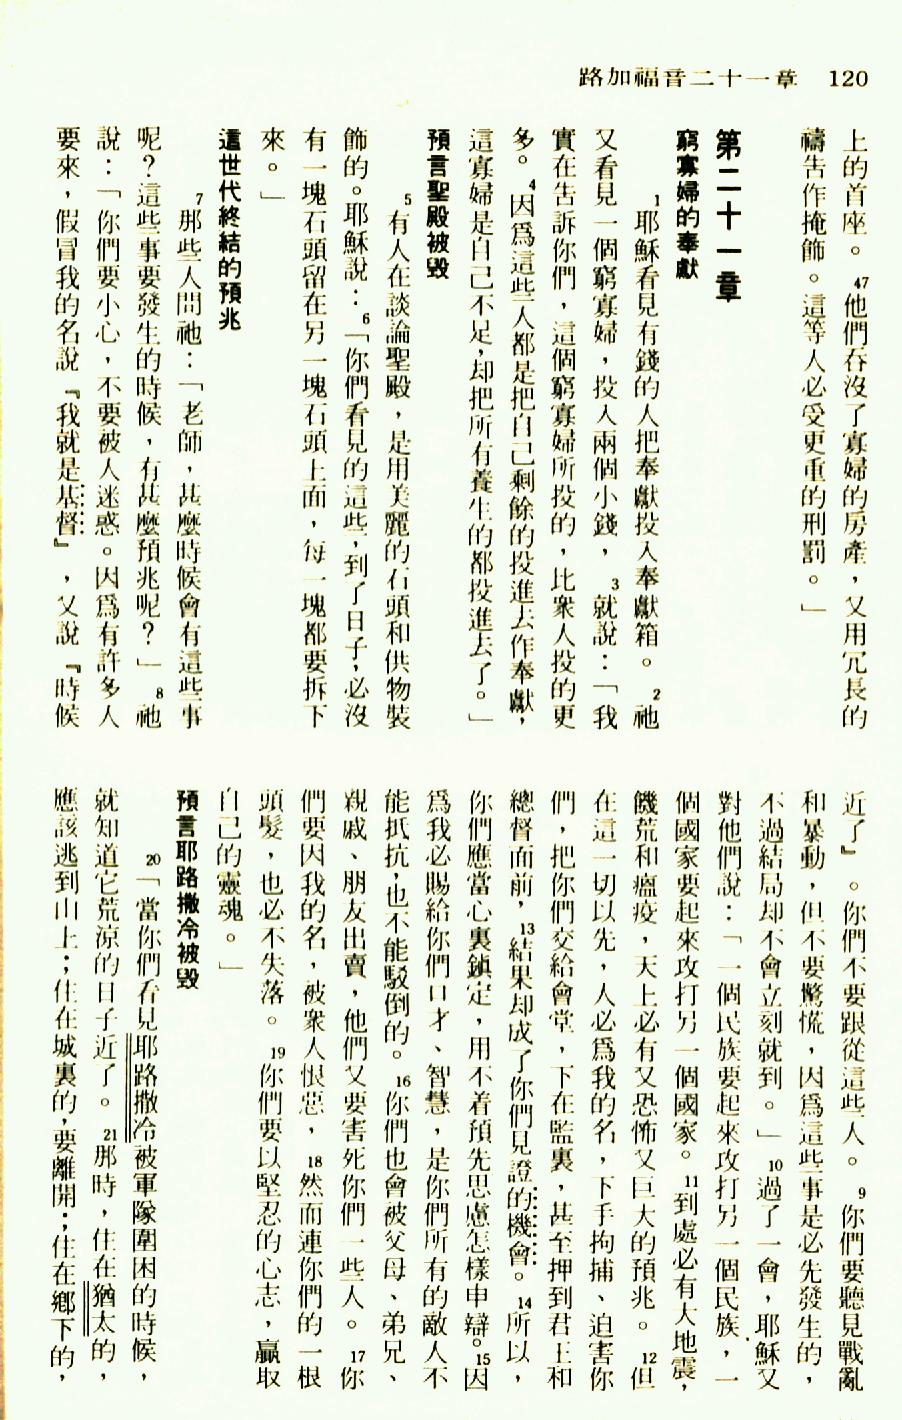 路加福音二十一章　120
上的首座。47他們吞沒了寡婦的房產，又用冗長的
禱告作掩飾。這等人必受更重的刑罰。」
第二十一章
窮寡婦的奉獻
1耶穌看見有錢的人把奉獻投入奉獻箱。2祂
又看見一個窮寡婦，投入兩個小錢，3就說：「我
實在告訴你們，這個窮寡婦所投的，比衆人投的更
多。4因爲這些人都是把自己剩餘的投進去作奉獻，
這寡婦是自己不足，却把所有養生的都投進去了。」
預言聖殿被毀
5有人在談論聖殿，是用美麗的石頭和供物裝
飾的。耶穌說：6「你們看見的這些，到了日子，必沒
有一塊石頭留在另一塊石頭上面，每一塊都要拆下
來。」
這世代終結的預兆
7那些人問祂：「老師，甚麼時候會有這些事
呢？這些事要發生的時候，有甚麼預兆呢？」8祂
說：「你們要小心，不要被人迷惑。因爲有許多人
要來，假冒我的名說『我就是基督』，又說『時候
近了』。你們不要跟從這些人。9你們要聽見戰亂
和暴動，但不要驚慌，因爲這些事是必先發生的，
不過結局却不會立刻就到。」10過了一會，耶穌又
對他們說：「一個民族要起來攻打另一個民族，一
個國家要起來攻打另一個國家。11到處必有大地震，
饑荒和瘟疫，天上必有又恐怖又巨大的預兆。12但
在這一切以先，人必爲我的名，下手拘捕、迫害你
們，把你們交給會堂，下在監裏，甚至押到君王和
總督面前，13結果却成了你們見證的機會。14所以，
你們應當心裏鎮定，用不着預先思慮怎樣申辯。15因
爲我必賜給你們口才、智慧，是你們所有的敵人不
能抵抗，也不能駁倒的。16你們也會被父母、弟兄、
親戚、朋友出賣，他們又要害死你們一些人。17你
們要因我的名，被衆人恨惡，18然而連你們的一根
頭髮，也必不失落。19你們要以堅忍的心志，贏取
自己的靈魂。」
預言耶路撒冷被毀
20「當你們看見耶路撒冷被軍隊圍困的時候，
就知道它荒涼的日子近了。21那時，住在猶太的，
應該逃到山上；住在城裏的，要離開；住在鄉下的，